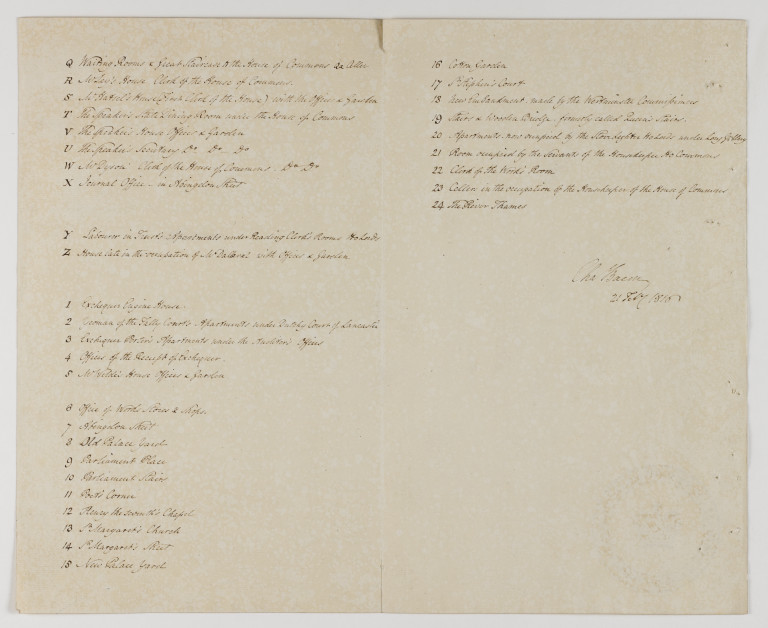 Q Waiting Rooms & Great Staircase to the House of Commons &c
R Mr Ley's House Clerk of the House of Commons
S Mr Hatsel's House (Clerk of the House) with the Offices & Garden
T The Speaker's State Dining Room under the House of Commons
V The Speaker's House Offices & Garden
U The Speaker's Secretary Do Do Do
W Mr Dyson Clerk of the House of Commons Do Do
X Journal Office - in Abingdon Street
Y Labourer in Trust's Apartments under Reading Clerk's Rooms Ho Lords
Z House late in the occupation of Mr Dalaval with Offices & Garden
1 Exchequer Engine House
2 Yeoman of the Tally Court's Apartments under Dutchy Court of Lancaster
3 Exchequer Porter's Apartments under the Auditor's Offices
4 Offices of the Receipt of Exchequer
5 Mr Wilde's House Offices & Garden
6 Office of Works Stores & Shops
7 Abingdon Street
8 Old Palace Yard
9 Parliament Place
10 Parliament Stairs
11 Poet's Corner
12 Henry the Seventh's Chapel
13 St Margaret's Church
14 St Margaret's Street
15 New Palace Yard
16 Cotton Garden
17 St Stephen's Court
18 New Embankment made by the Westminster Commissioners
19 Stairs & Wooden Bridge formerly called Queen's Stairs
20 Apartments now occupied by the Ho Lords under Long Gallery
21 Room occupied by the Servants of the Housekeeper Ho Commons
22 Clerk of the Work's Room
23 Cellar in the occupation of the Housekeeper of the House of Commons
24 The River Thames
Cha Bacon
21 Feby